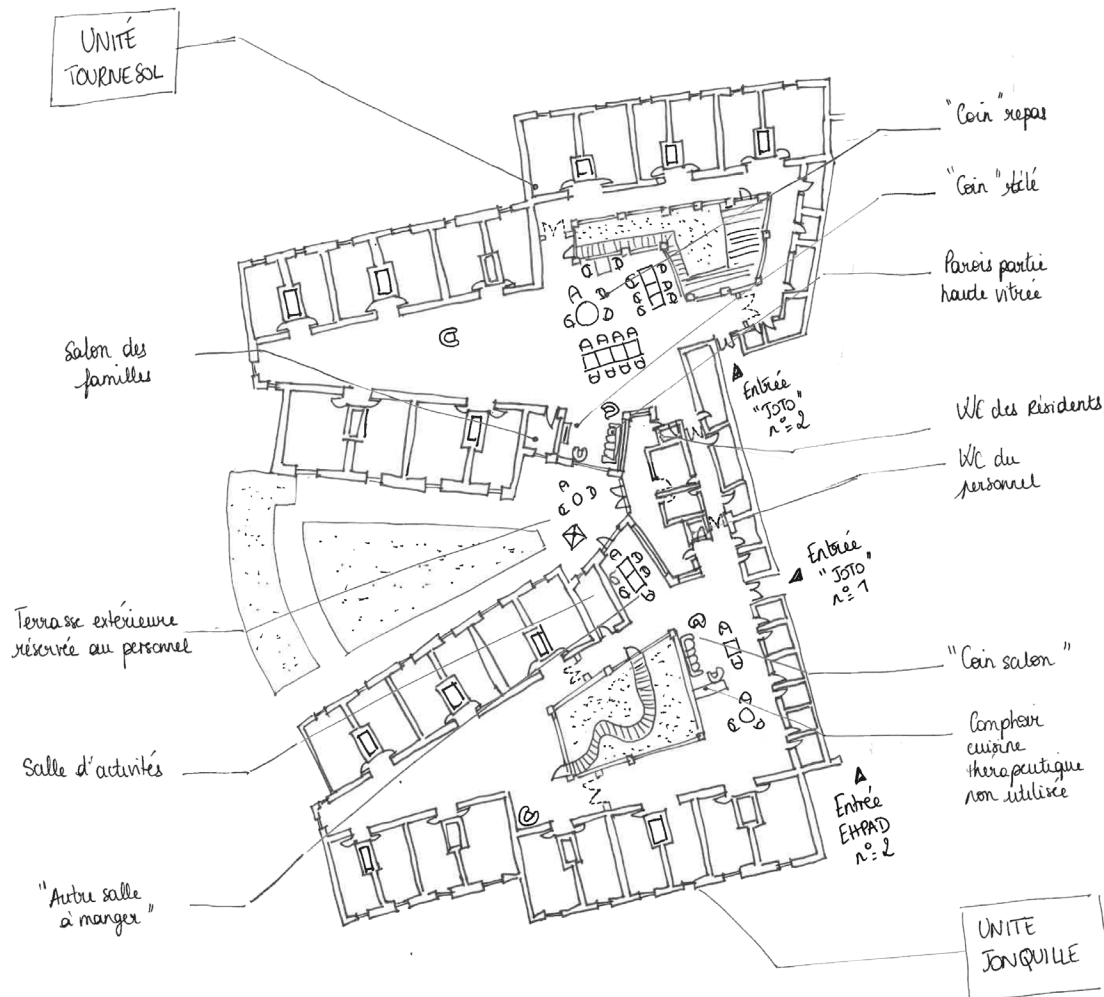 UNITÉ
TOURNESOL
"Coin" repas
"Coin" télé
Parois partie
haute vitrée
Salon des
familles
Entrée
"TOTO"
n°=2
WC des Résidents
WC du
personnel
Entrée
"TOTO"
n°=1
Terrasse extérieure
réservée au personnel
"Coin salon"
Salle d'activités
Comptoir
cuisine
thérapeutique
non utilisée
Entrée
EHPAD
n°=2
"Autre salle
à manger"
UNITE
JONQUILLE